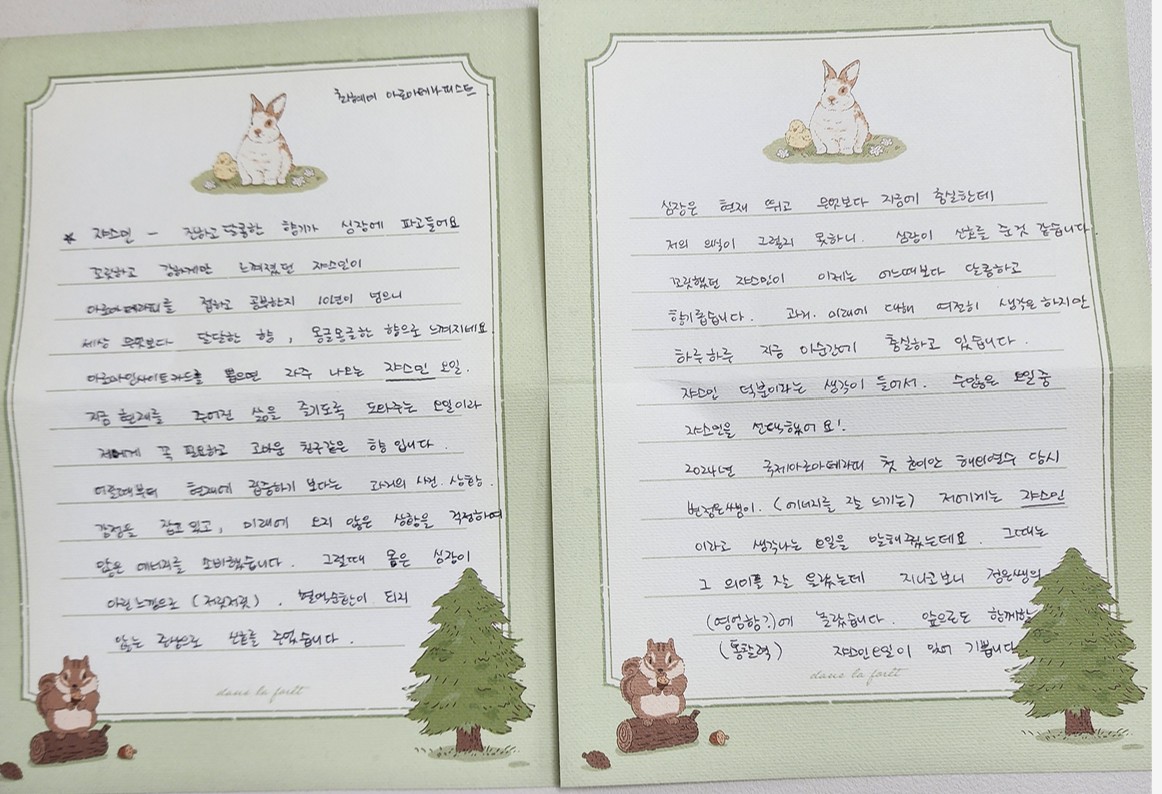 아로마테라피스트
* 쟈스민 - 진하고 달콤한 향기가 심장에 파고들어요
꼬릿하고 강하게만 느껴졌던 쟈스민이
아로마테라피를 접하고 공부한지 10년이 넘으니
세상 무엇보다 달달한 향, 몽글몽글한 향으로 느껴지네요.
아로마인사이트카드를 뽑으면 자주 나오는 쟈스민 오일.
지금 현재를 주어진 삶을 즐기도록 도와주는 오일이라
저에게 꼭 필요하고 고마운 친구같은 향 입니다.
어릴때부터 현재에 집중하기 보다는 과거의 사건. 상황.
감정을 잡고 있고, 미래에 오지 않은 상황을 걱정하며
많은 에너지를 소비했습니다. 그럴때 몸은 심장이
아릴 느낌으로 (저릿저릿). 혈액순환이 되지
않는 증상으로 신호를 주었습니다.
dans la forêt
심장은 현재 뛰고 무엇보다 지금에 충실한데
저의 의식이 그렇지 못하니. 심장이 신호를 준것 같습니다.
꼬릿했던 쟈스민이 이제는 어느때보다 달콤하고
향기롭습니다. 과거. 미래에 대해 여전히 생각은 하지만
하루하루 지금 이순간에 충실하고 있습니다.
쟈스민 덕분이라는 생각이 들어서. 수많은 오일중
쟈스민을 선택했어요!.
2024년 국제아로마테라피 첫 호이안 해외연수 당시
변정은쌤이. (에너지를 잘 느끼는) 저에게는 쟈스민
이라고 생각나는 오일을 말해줬는데요. 그때는
그 의미를 잘 몰랐는데 지나고보니 정은쌤의
(영엄함?)에 놀랐습니다. 앞으로도 함께할
(통찰력) 쟈스민오일이 있어 기쁩니다
dans la forêt